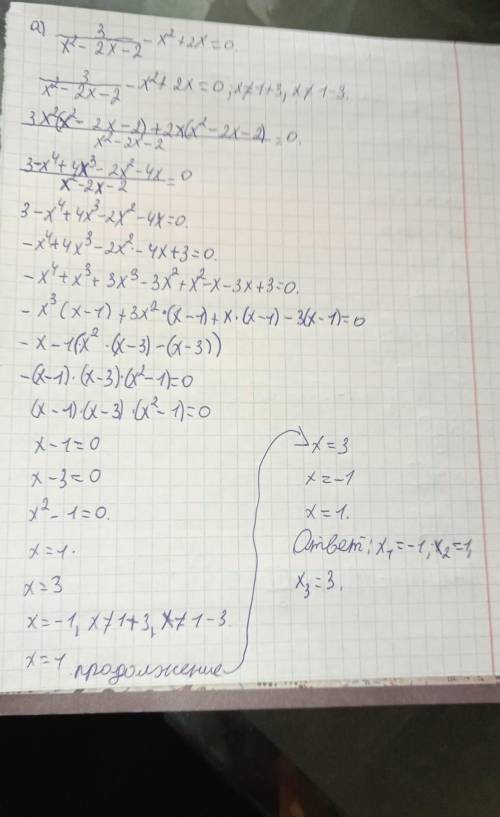 а) 3/(x² - 2x - 2) - x² + 2x = 0.
3/(x² - 2x - 2) - x² + 2x = 0, x ≠ 1+3, x ≠ 1-3.
(3x²(x² - 2x - 2) + 2x(x² - 2x - 2))/(x² - 2x - 2) = 0.
(3 - x⁴ + 4x³ - 2x² - 4x)/(x² - 2x - 2) = 0
3 - x⁴ + 4x³ - 2x² - 4x = 0.
- x⁴ + 4x³ - 2x² - 4x + 3 = 0.
- x⁴ + x³ + 3x³ - 3x² + x² - x - 3x + 3 = 0.
- x³ (x - 1) + 3x² · (x - 1) + x · (x - 1) - 3(x - 1) = 0
- x - 1(x² · (x - 3) - (x - 3))
- (x - 1) · (x - 3) · (x² - 1) = 0
(x - 1) · (x - 3) · (x² - 1) = 0
x - 1 = 0
x - 3 = 0
x² - 1 = 0.
x = 1.
x = 3
x = -1, x ≠ 1+3, x ≠ 1-3
x = 1 продолжение
x = 3
x = -1
x = 1.
Ответ: x₁ = -1, x₂ = 1,
x₃ = 3.